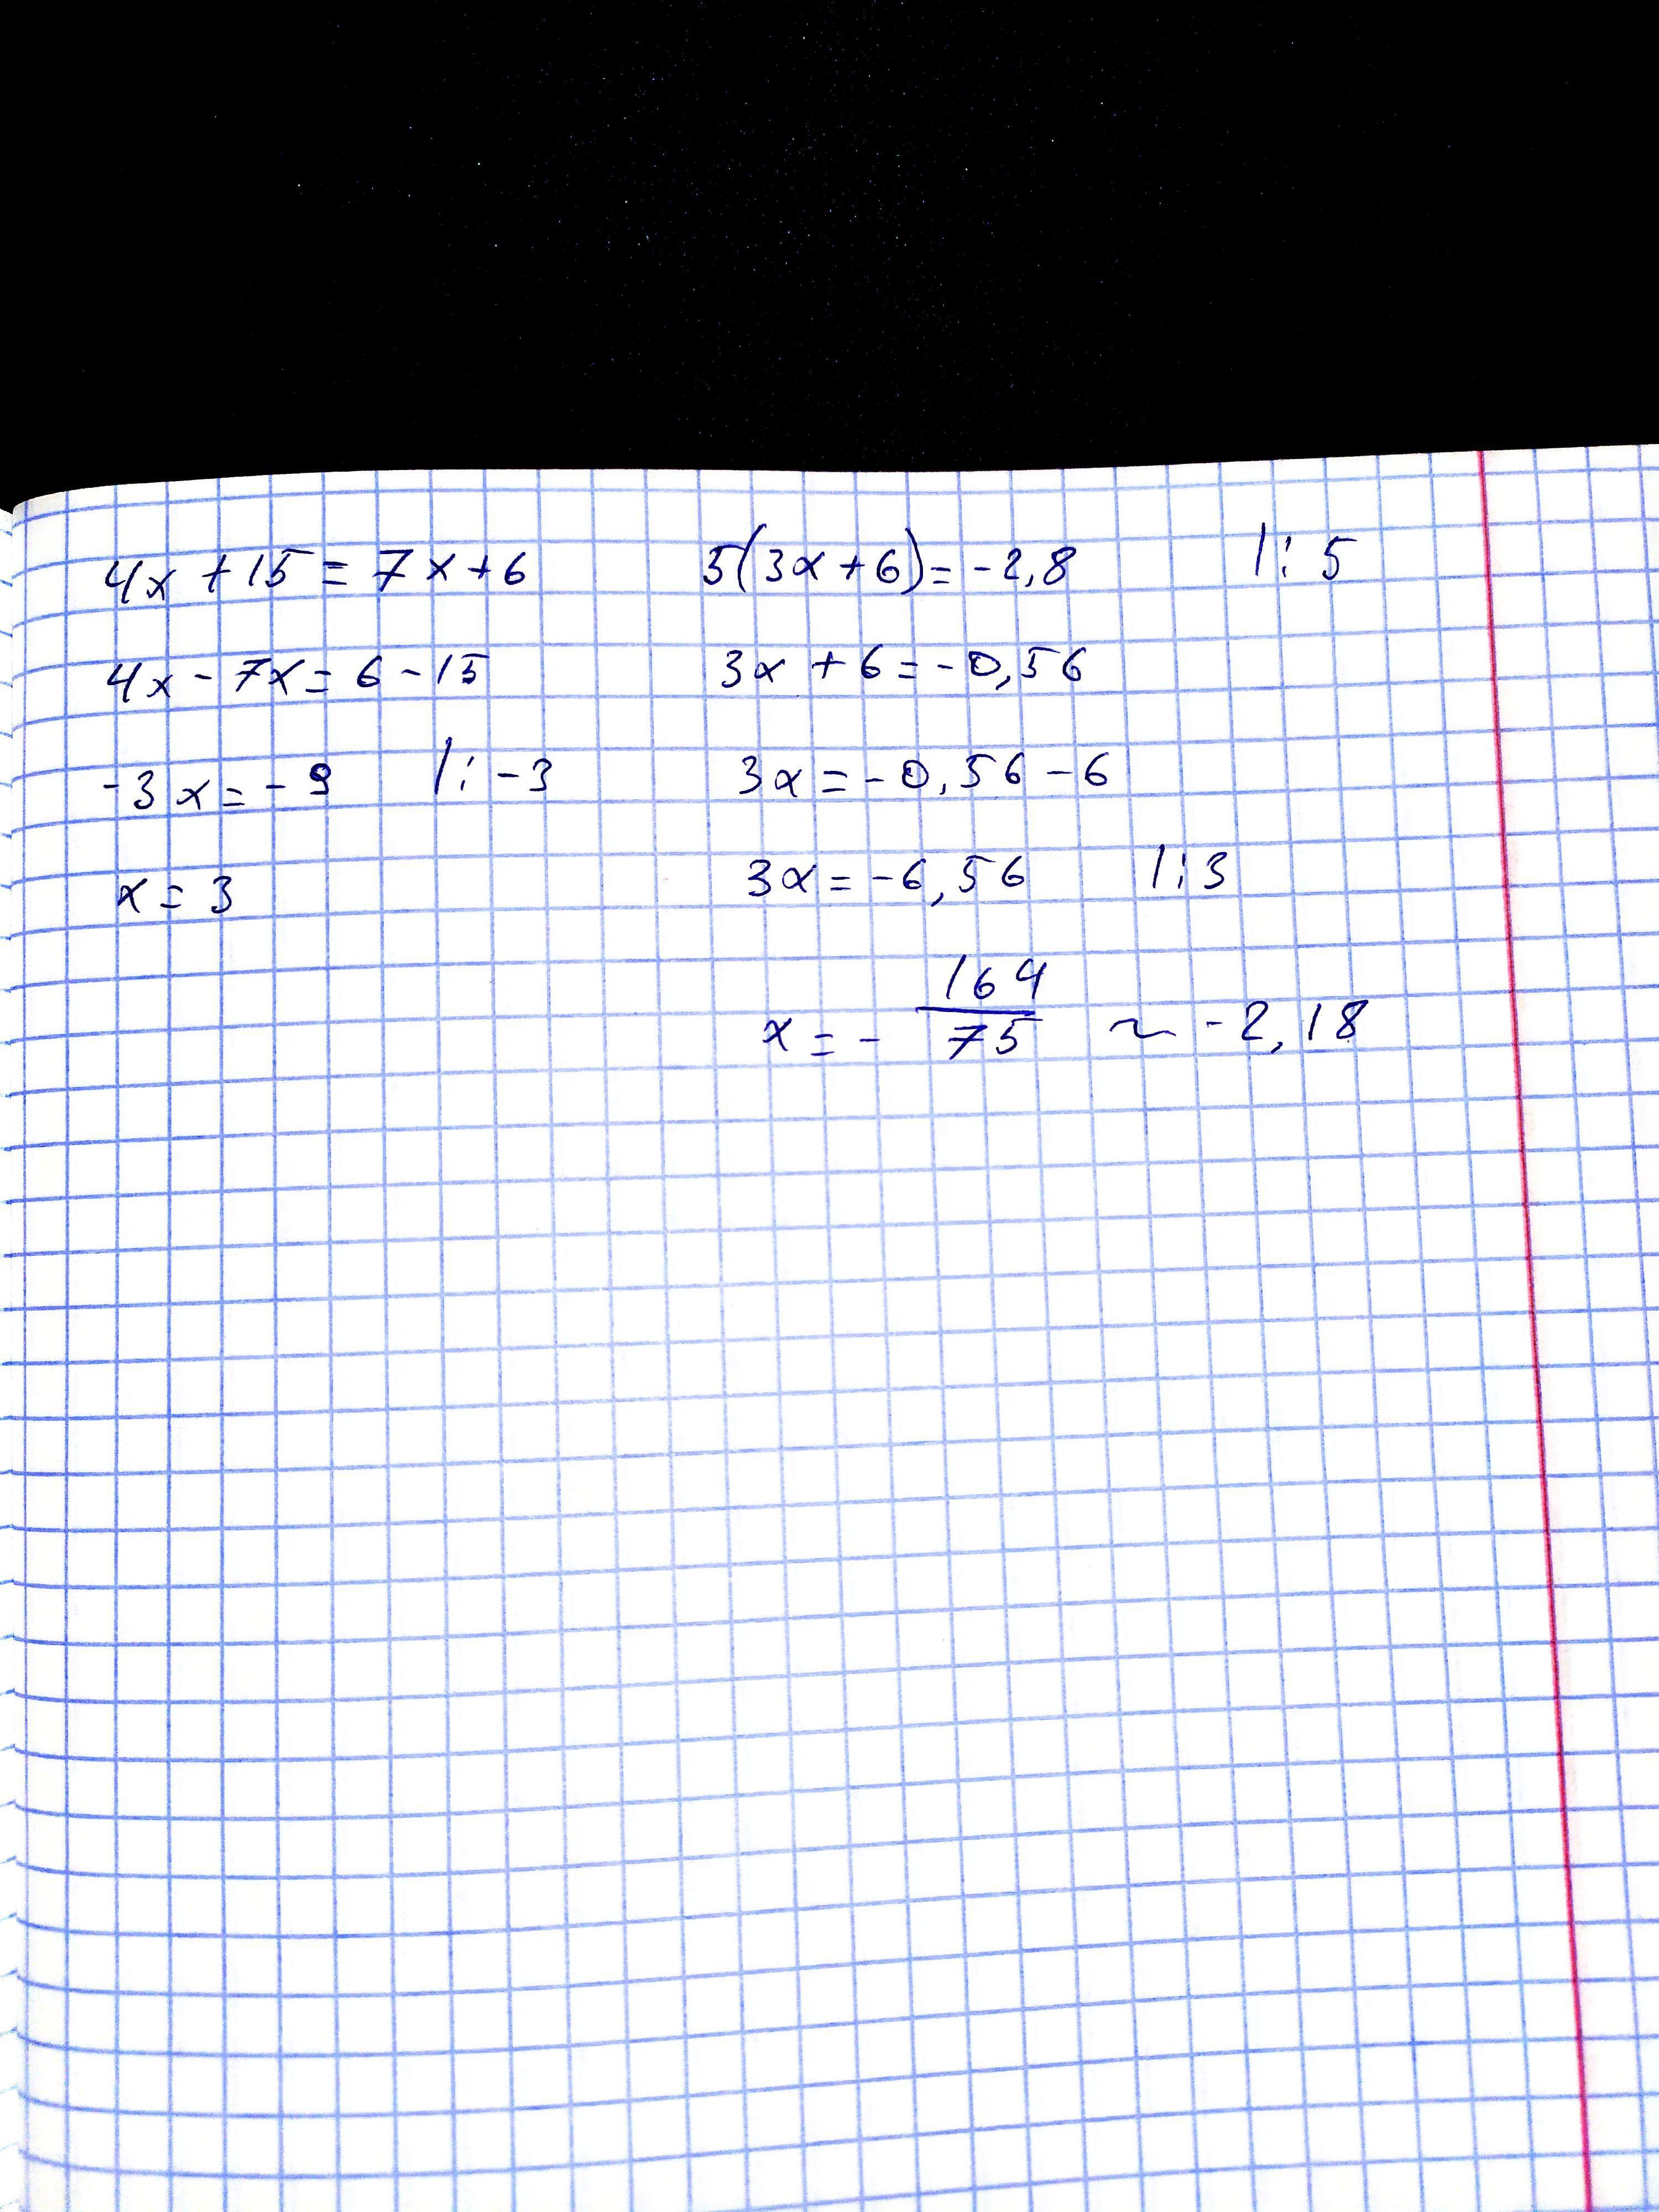 4x + 15 = 7x + 6
4x - 7x = 6 - 15
-3x = -9 |: -3
x = 3
5(3x + 6) = -2,8 |: 5
3x + 6 = -0,56
3x = -0,56 - 6
3x = -6,56 |: 3
x = - 164/75 ~ -2,18